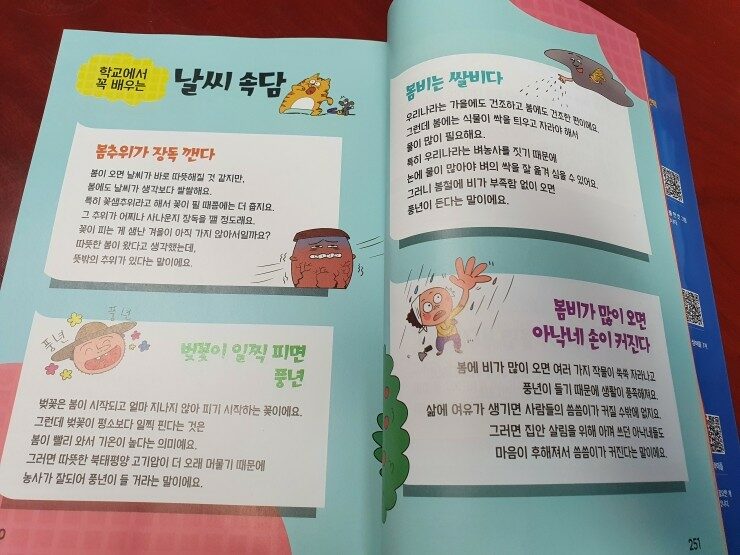 학교에서
꼭 배우는
날씨 속담
봄추위가 장독 깬다
봄이 오면 날씨가 바로 따뜻해질 것 같지만,
봄에도 날씨가 생각보다 쌀쌀해요.
특히 꽃샘추위라고 해서 꽃이 필 때쯤에는 더 춥지요.
그 추위가 어찌나 사나운지 장독을 깰 정도래요.
꽃이 피는 게 샘난 겨울이 아직 가지 않아서일까요?
따뜻한 봄이 왔다고 생각했는데,
뜻밖의 추위가 있다는 말이에요.
풍년
풍년
벚꽃이 일찍 피면
풍년
벚꽃은 봄이 시작되고 얼마 지나지 않아 피기 시작하는 꽃이에요.
그런데 벚꽃이 평소보다 일찍 핀다는 것은
봄이 빨리 와서 기온이 높다는 의미예요.
그러면 따뜻한 북태평양 고기압이 더 오래 머물기 때문에
농사가 잘되어 풍년이 들 거라는 말이에요.
봄비는 쌀비다
우리나라는 가을에도 건조하고 봄에도 건조한 편이에요.
그런데 봄에는 식물이 싹을 틔우고 자라야 해서
물이 많이 필요해요.
특히 우리나라는 벼농사를 짓기 때문에
논에 물이 많아야 벼의 싹을 잘 옮겨 심을 수 있어요.
그러니 봄철에 비가 부족함 없이 오면
풍년이 든다는 말이에요.
봄비가 많이 오면
아낙네 손이 커진다
봄에 비가 많이 오면 여러 가지 작물이 쑥쑥 자라나고
풍년이 들기 때문에 생활이 풍족해져요.
삶에 여유가 생기면 사람들의 씀씀이가 커질 수밖에 없지요.
그러면 집안 살림을 위해 아껴 쓰던 아낙네들도
마음이 후해져서 씀씀이가 커진다는 말이에요.
251